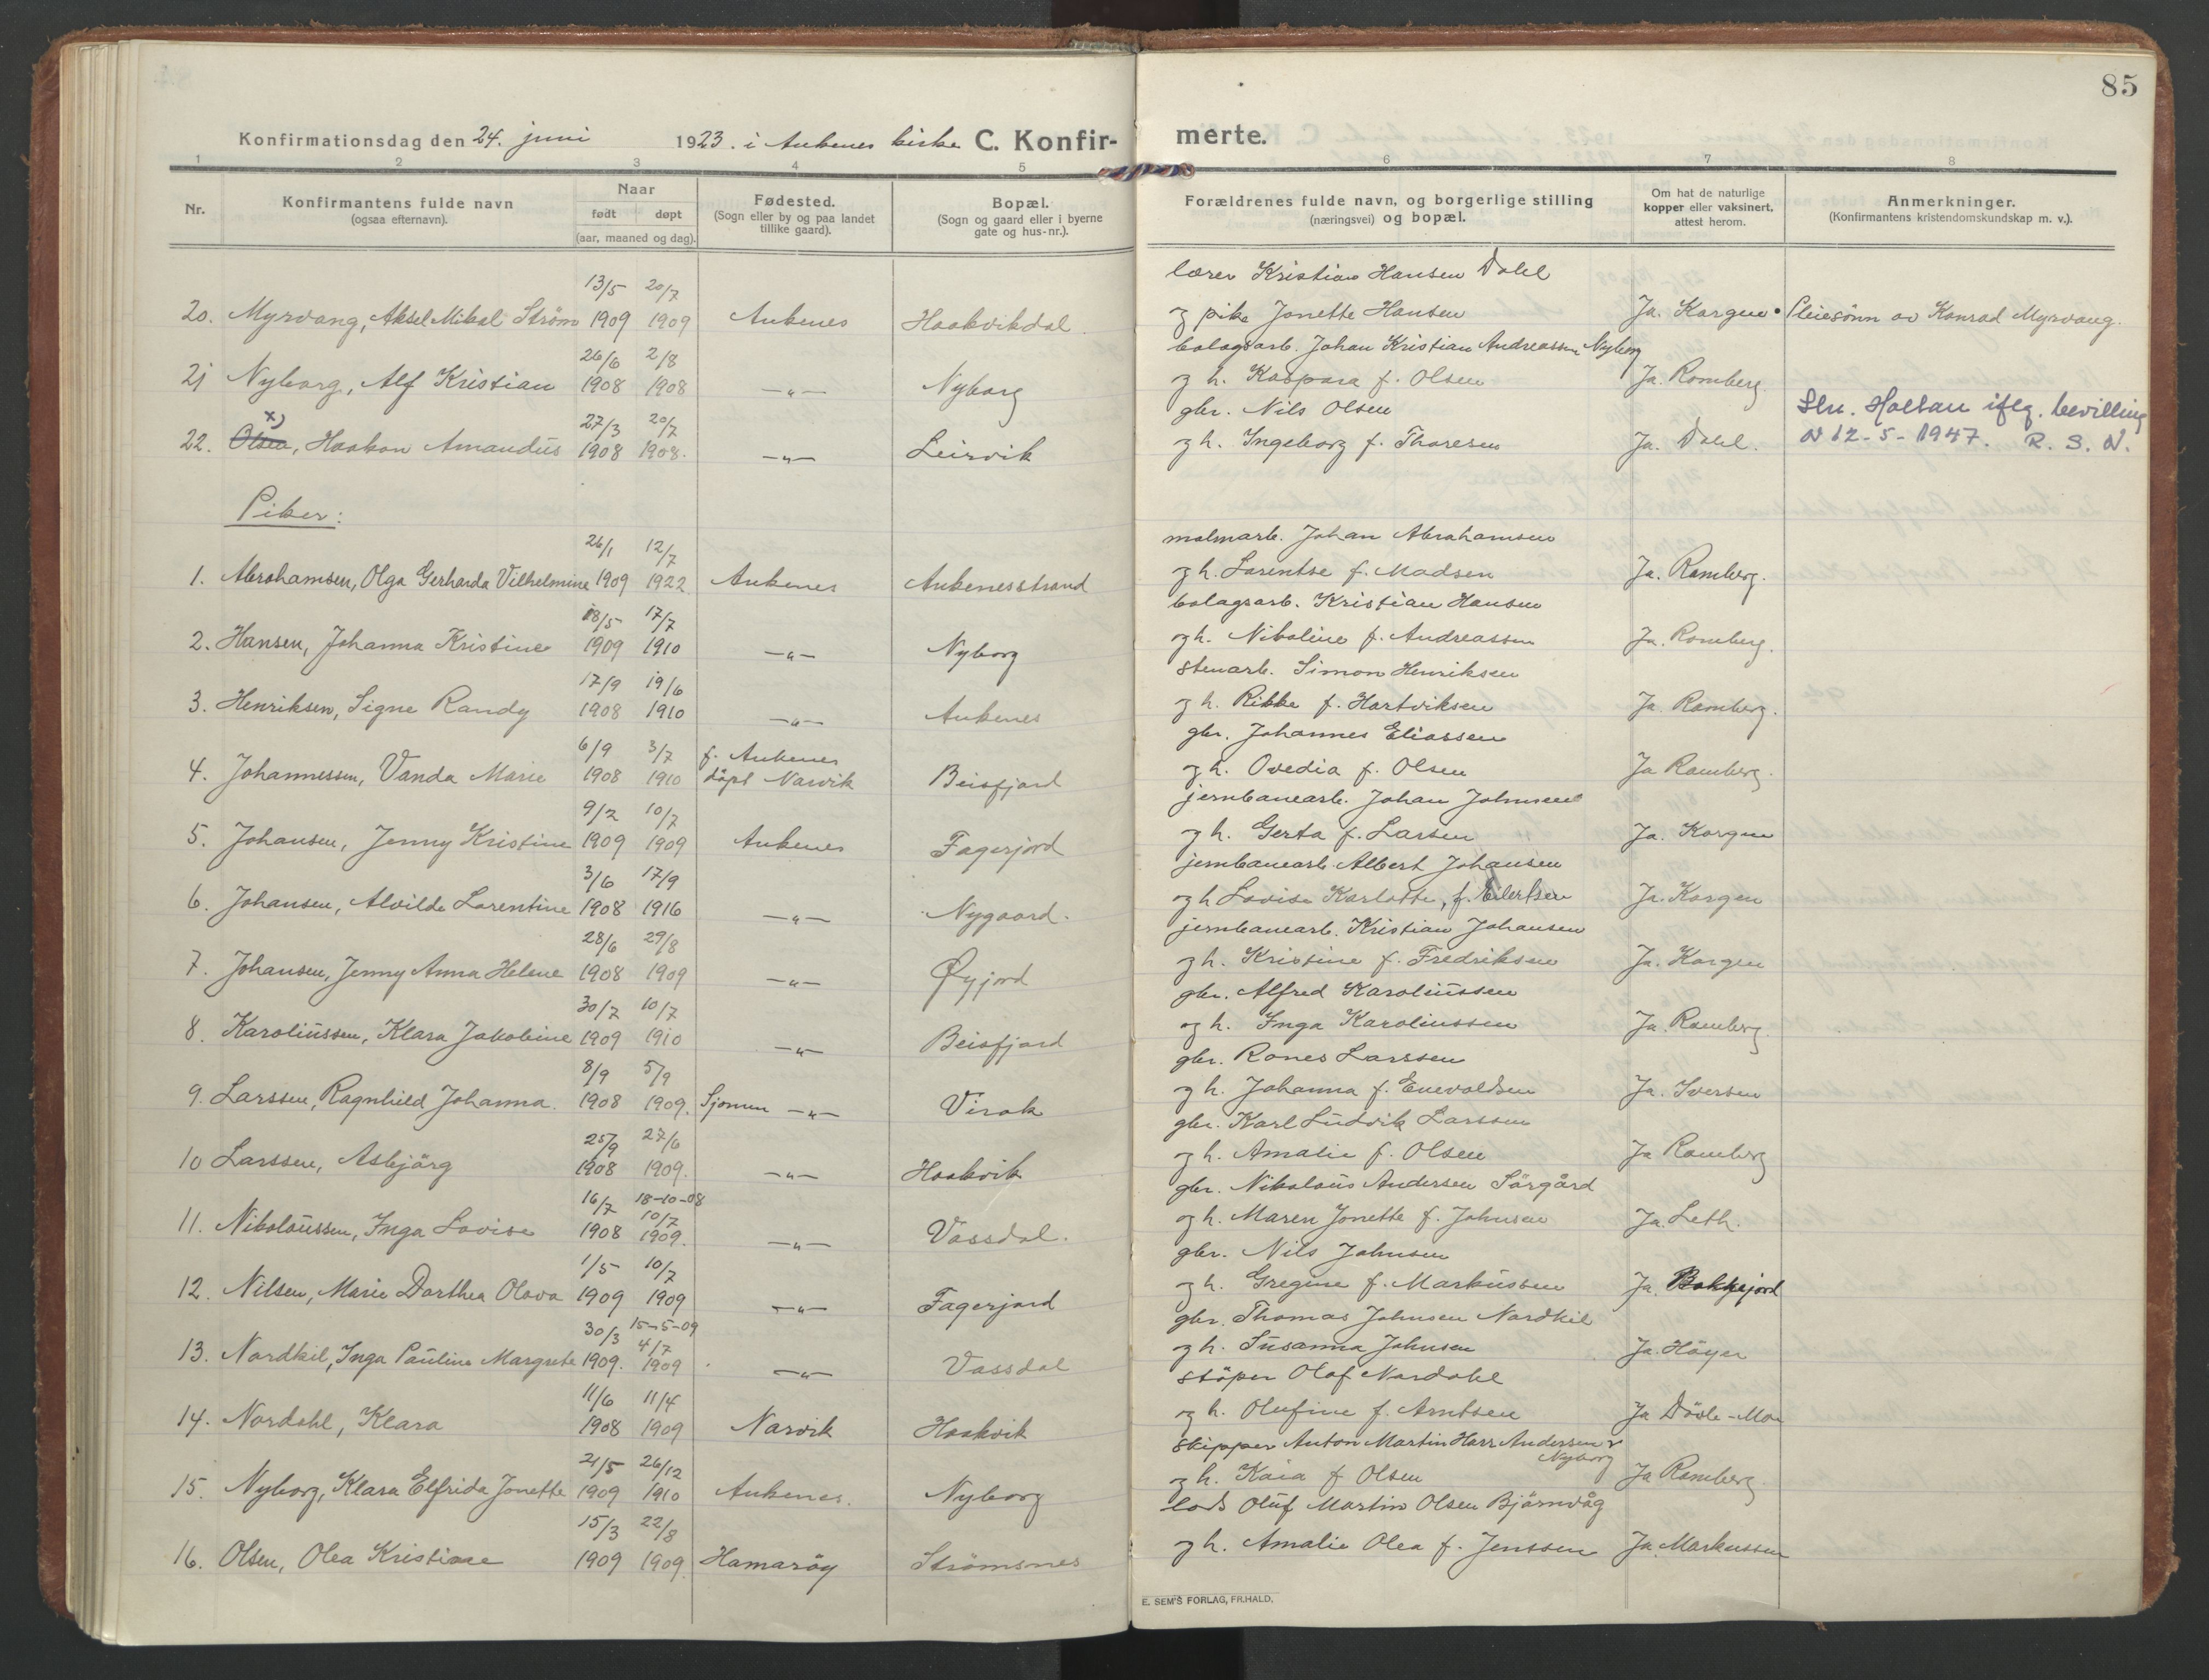 85
Konfirmationsdag den 24. juni 1923. i Ankenes kirke C. Konfirmerte.
1 2 3 4 5 6 7 8
Nr.
Konfirmantens fulde navn
(ogsaa efternavn).
Naar
født døpt
(aar, maaned og dag).
Fødested.
(Sogn eller by og paa landet
tillike gaard).
Bopæl.
(Sogn og gaard eller i byerne
gate og hus-nr.).
Forældrenes fulde navn, og borgerlige stilling
(næringsvei) og bopæl.
Om hat de naturlige
kopper eller vaksinert,
attest herom.
Anmerkninger.
(Konfirmantens kristendomskundskap m. v.).
13/5 20/7 lærer Kristian Hansen Dahl
20. Myrvang, Aksel Mikal Strøm 1909 1909 Ankenes Haakvikdal. og pike Jonette Hansen Ja. Korgen Pleiesönn av Konrad Myrvang.
26/6 2/8 bolagsarb. Johan Kristian Andreassen Nyborg
21 Nyborg, Alf Kristian 1908 1908 —„— Nyborg og h. Kaspara f. Olsen Ja. Romberg.
x) 27/3 20/7 gbr. Nils Olsen Sln. Holtan iflg. bevilling
22. Olsen, Haakon Amandus 1908 1908. —„— Leirvik og h. Ingeborg f. Thoresen Ja. Dahl. av 12-5-1947. R. S. N.
Piker:
26/1 12/7 malmarb. Johan Abrahamsen
1. Abrahamsen, Olga Gerharda Vilhelmine 1909 1922. Ankenes Ankenesstrand og h. Larentse f. Madsen Ja. Romberg.
18/5 17/7 bolagsarb. Kristian Hansen
2. Hansen, Johanna Kristine 1909 1910 —„— Nyborg og h. Nikoline f. Andreassen Ja. Romberg.
17/9 19/6 stenarb. Simon Henriksen
3. Henriksen, Signe Randy 1908 1910 —„— Ankenes og h. Rikke f. Hartviksen Ja. Romberg.
6/9 3/7 f. Ankenes gbr. Johannes Eliassen
4. Johannessen, Vanda Marie 1908 1910 döpt Narvik Beisfjord og h. Ovedia f. Olsen Ja Romberg.
9/2 10/7 jernbanearb. Johan Johnsen
5. Johansen, Jenny Kristine 1909 1909 Ankenes Fagerjord og h. Gerta f. Larsen Ja. Korgen
3/6 17/9 jernbanearb. Albert Johansen
6. Johansen, Alvilde Larentine 1908 1916 —„— Nygaard. og h Lovise Karlotte, f. Eilertsen Ja. Korgen
28/6 29/8 jernbanearb. Kristian Johansen
7. Johansen, Jenny Anna Helene 1908 1909 —„— Øyjord og h. Kristine f. Fredriksen Ja. Korgen
30/7 10/7 gbr. Alfred Karoliussen
8. Karoliussen, Klara Jakobine 1909 1910 —„— Beisfjord og h. Inga Karoliussen Ja. Romberg.
8/9 5/9 gbr. Rones Larssen
9. Larssen, Ragnhild Johanna. 1908 1909. Sjomen —„— Virak og h. Johanna f. Enevoldsen Ja. Iversen
25/9 27/6 gbr. Karl Ludvik Larssen
10 Larssen, Asbjörg 1908 1909. —„— Haakvik og h. Amalie f. Olsen Ja Romberg
16/7 18-10-08 gbr. Nikolaus Andersen Sörgård
10/7
11. Nikolaussen, Inga Lovise 1908 1909. —„— Vassdal. og h. Maren Jonette f. Johnsen Ja. Leth.
1/5 10/7 gbr. Nils Johnsen
12. Nilsen, Marie Dorthea Olava 1909 1909 —„— Fagerjord og h. Gregine f. Markussen Ja. Bakkejord
30/3 15-5-09 gbr. Thomas Johnsen Nordkil
4/7
13. Nordkil, Inga Pauline Margrete 1909. 1909 —„— Vassdal og h. Susanna Johnsen Ja. Höyer
11/6 11/4 stöper Olaf Nordahl
14. Nordahl, Klara 1908 1909 Narvik Haakvik og h. Olufine f. Arntsen Ja Dösle-Moe
21/5 26/12 skipper Anton Martin Harr Andersen
Nyborg
15. Nyborg, Klara Elfrida Jonette 1909 1910 Ankenes. Nyborg og h. Kaia f Olsen Ja Romberg.
15/3 22/8 lods Oluf Martin Olsen Björnvåg
16. Olsen, Olea Kristine 1909 1909. Hamaröy Strömsnes og h. Amalie Olea f. Jenssen Ja. Markussen
E. SEM'S FORLAG, FR.HALD.